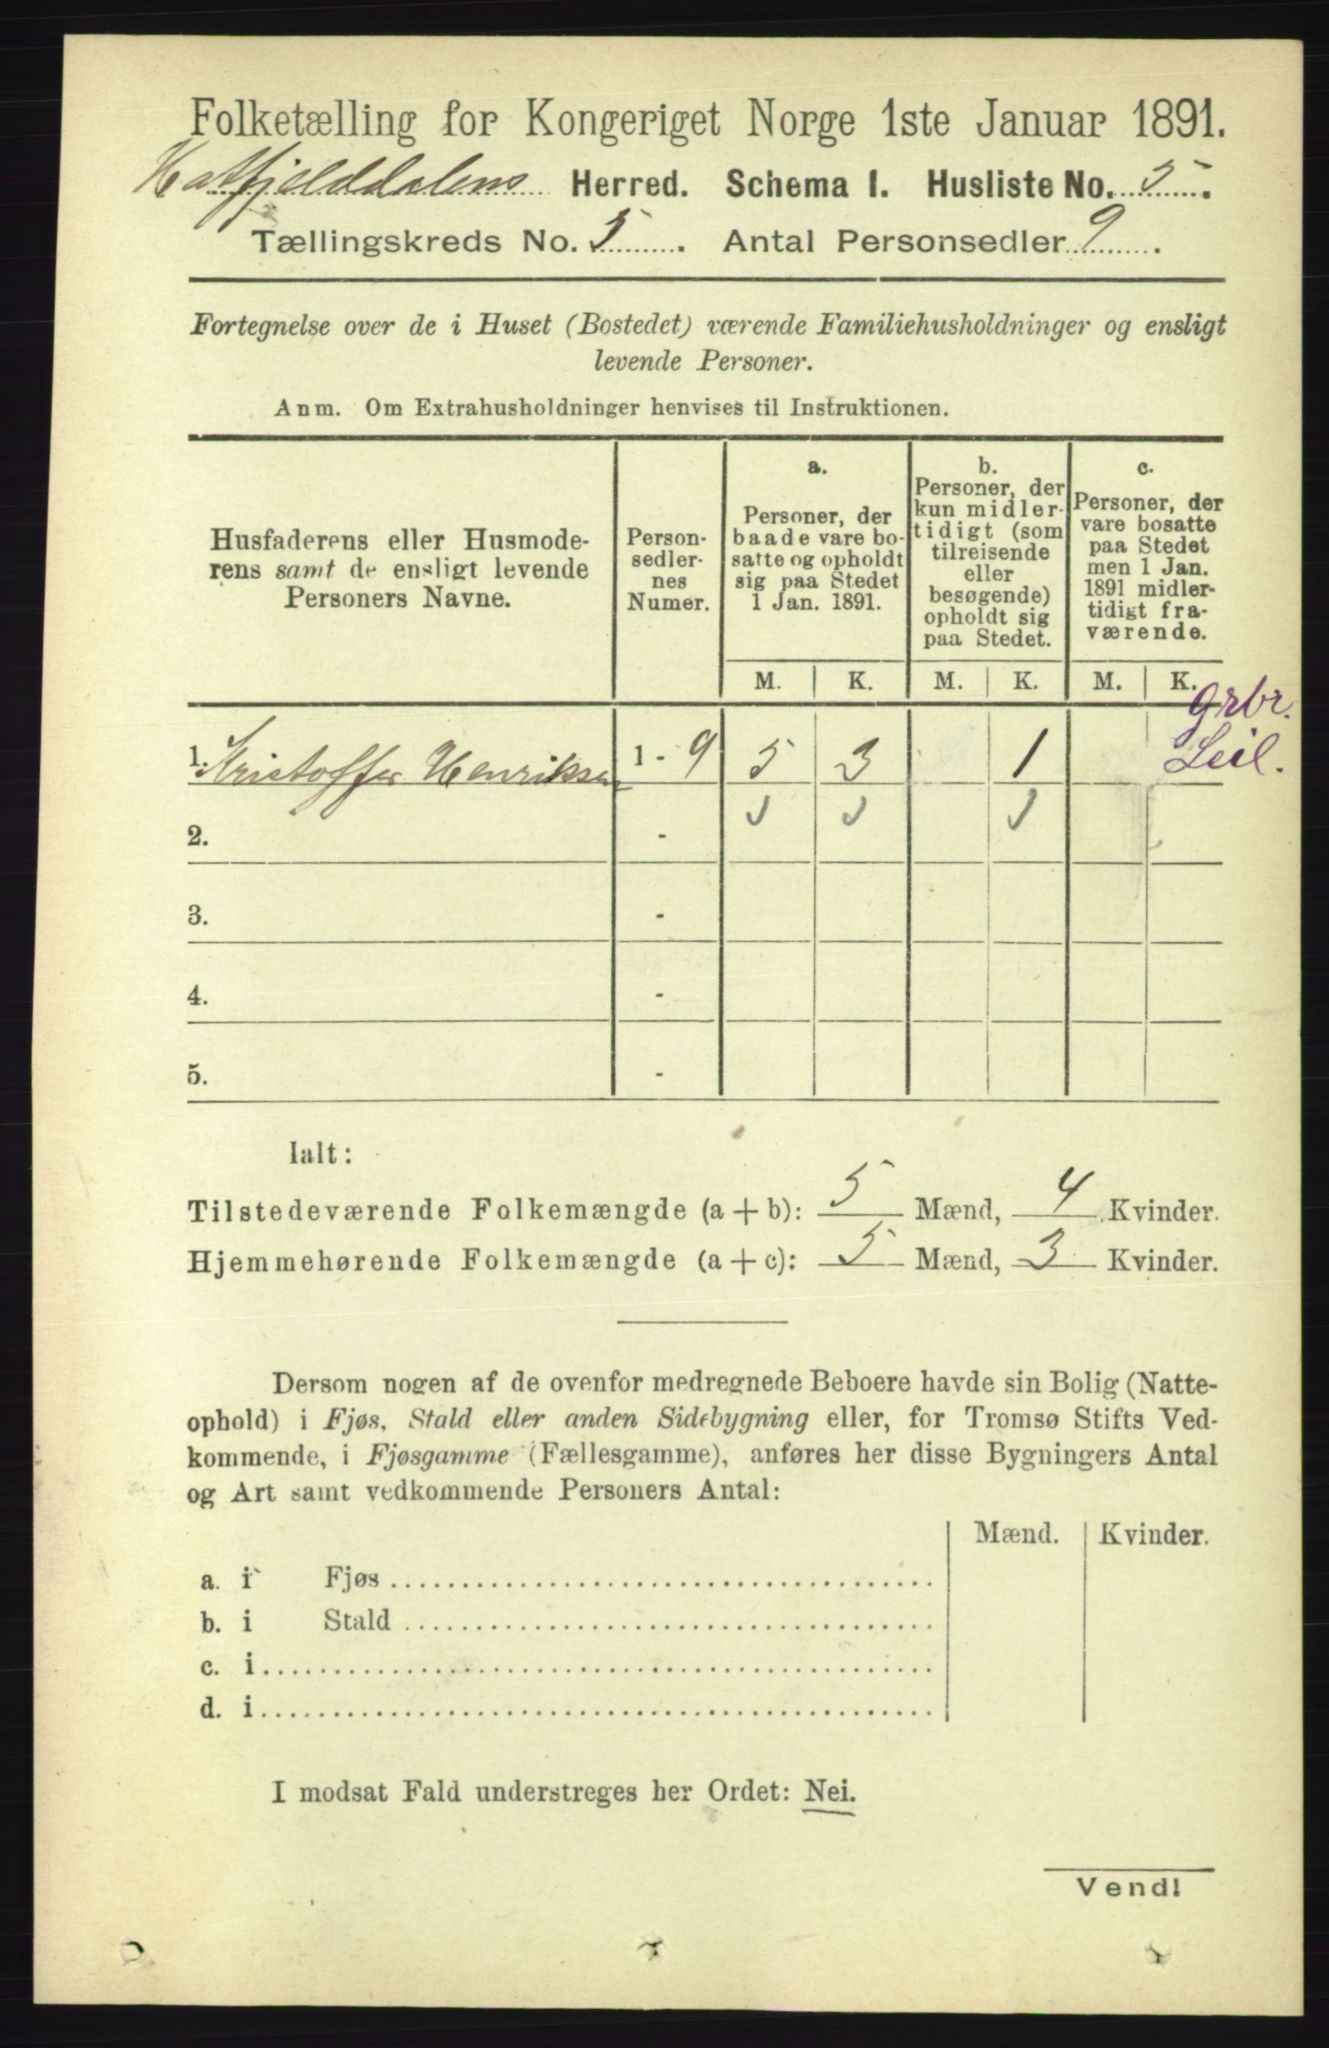 Folketælling for Kongeriget Norge 1ste Januar 1891.
Hatfjelddalens Herred. Schema I. Husliste No. 5.
Tællingskreds No. 5. Antal Personsedler 9.
Fortegnelse over de i Huset (Bostedet) værende Familiehusholdninger og ensligt
levende Personer.
Anm. Om Extrahusholdninger henvises til Instruktionen.
Husfaderens eller Husmode-
rens samt de ensligt levende
Personers Navne.
Person-
sedler-
nes
Numer.
a.
Personer, der
baade vare bo-
satte og opholdt
sig paa Stedet
1 Jan. 1891.
b.
Personer, der
kun midler-
tidigt (som
tilreisende
eller
besøgende)
opholdt sig
paa Stedet.
c.
Personer, der
vare bosatte
paa Stedet
men 1 Jan.
1891 midler-
tidigt fra-
værende.
M. K. M. K. M. K.
grbr.
1. Kristoffer Henriksen 1 - 9 5 3 1 Leil.
2. -
3. -
4. -
5. -
Ialt:
Tilstedeværende Folkemængde (a + b): 5 Mænd, 4 Kvinder.
Hjemmehørende Folkemængde (a + c): 5 Mænd, 3 Kvinder.
Dersom nogen af de ovenfor medregnede Beboere havde sin Bolig (Natte-
ophold) i Fjøs, Stald eller anden Sidebygning eller, for Tromsø Stifts Ved-
kommende, i Fjøsgamme (Fællesgamme), anføres her disse Bygningers Antal
og Art samt vedkommende Personers Antal:
Mænd. Kvinder.
a. i Fjøs
b. i Stald
c. i
d. i
I modsat Fald understreges her Ordet: Nei.
Vend!